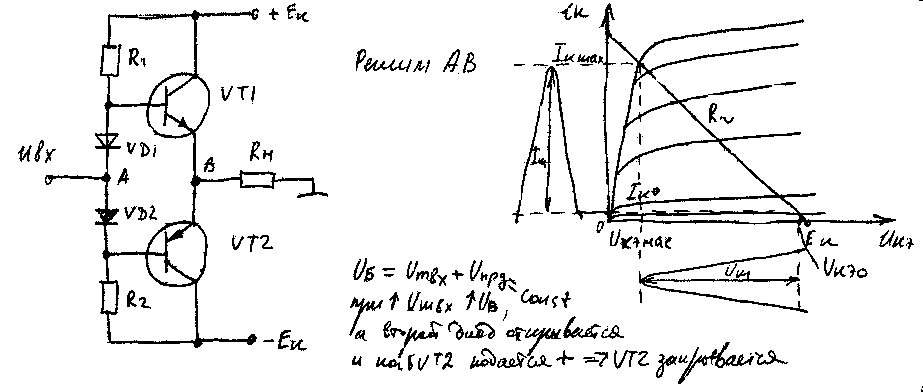 + Eк
R1
VT1
VD1
Uвх
A
B
Rн
VD2
VT2
R2
- Eк
Режим АВ
iк
Iк max
Iк
R~
Iк0
0
Eк
Uкэ
Uкэ0
Uб = Umвх + Uпрд = const
при ↑ Umвх ↑ Uб,
а второй диод открывается
и на б VT2 подается + => VT2 закрывается